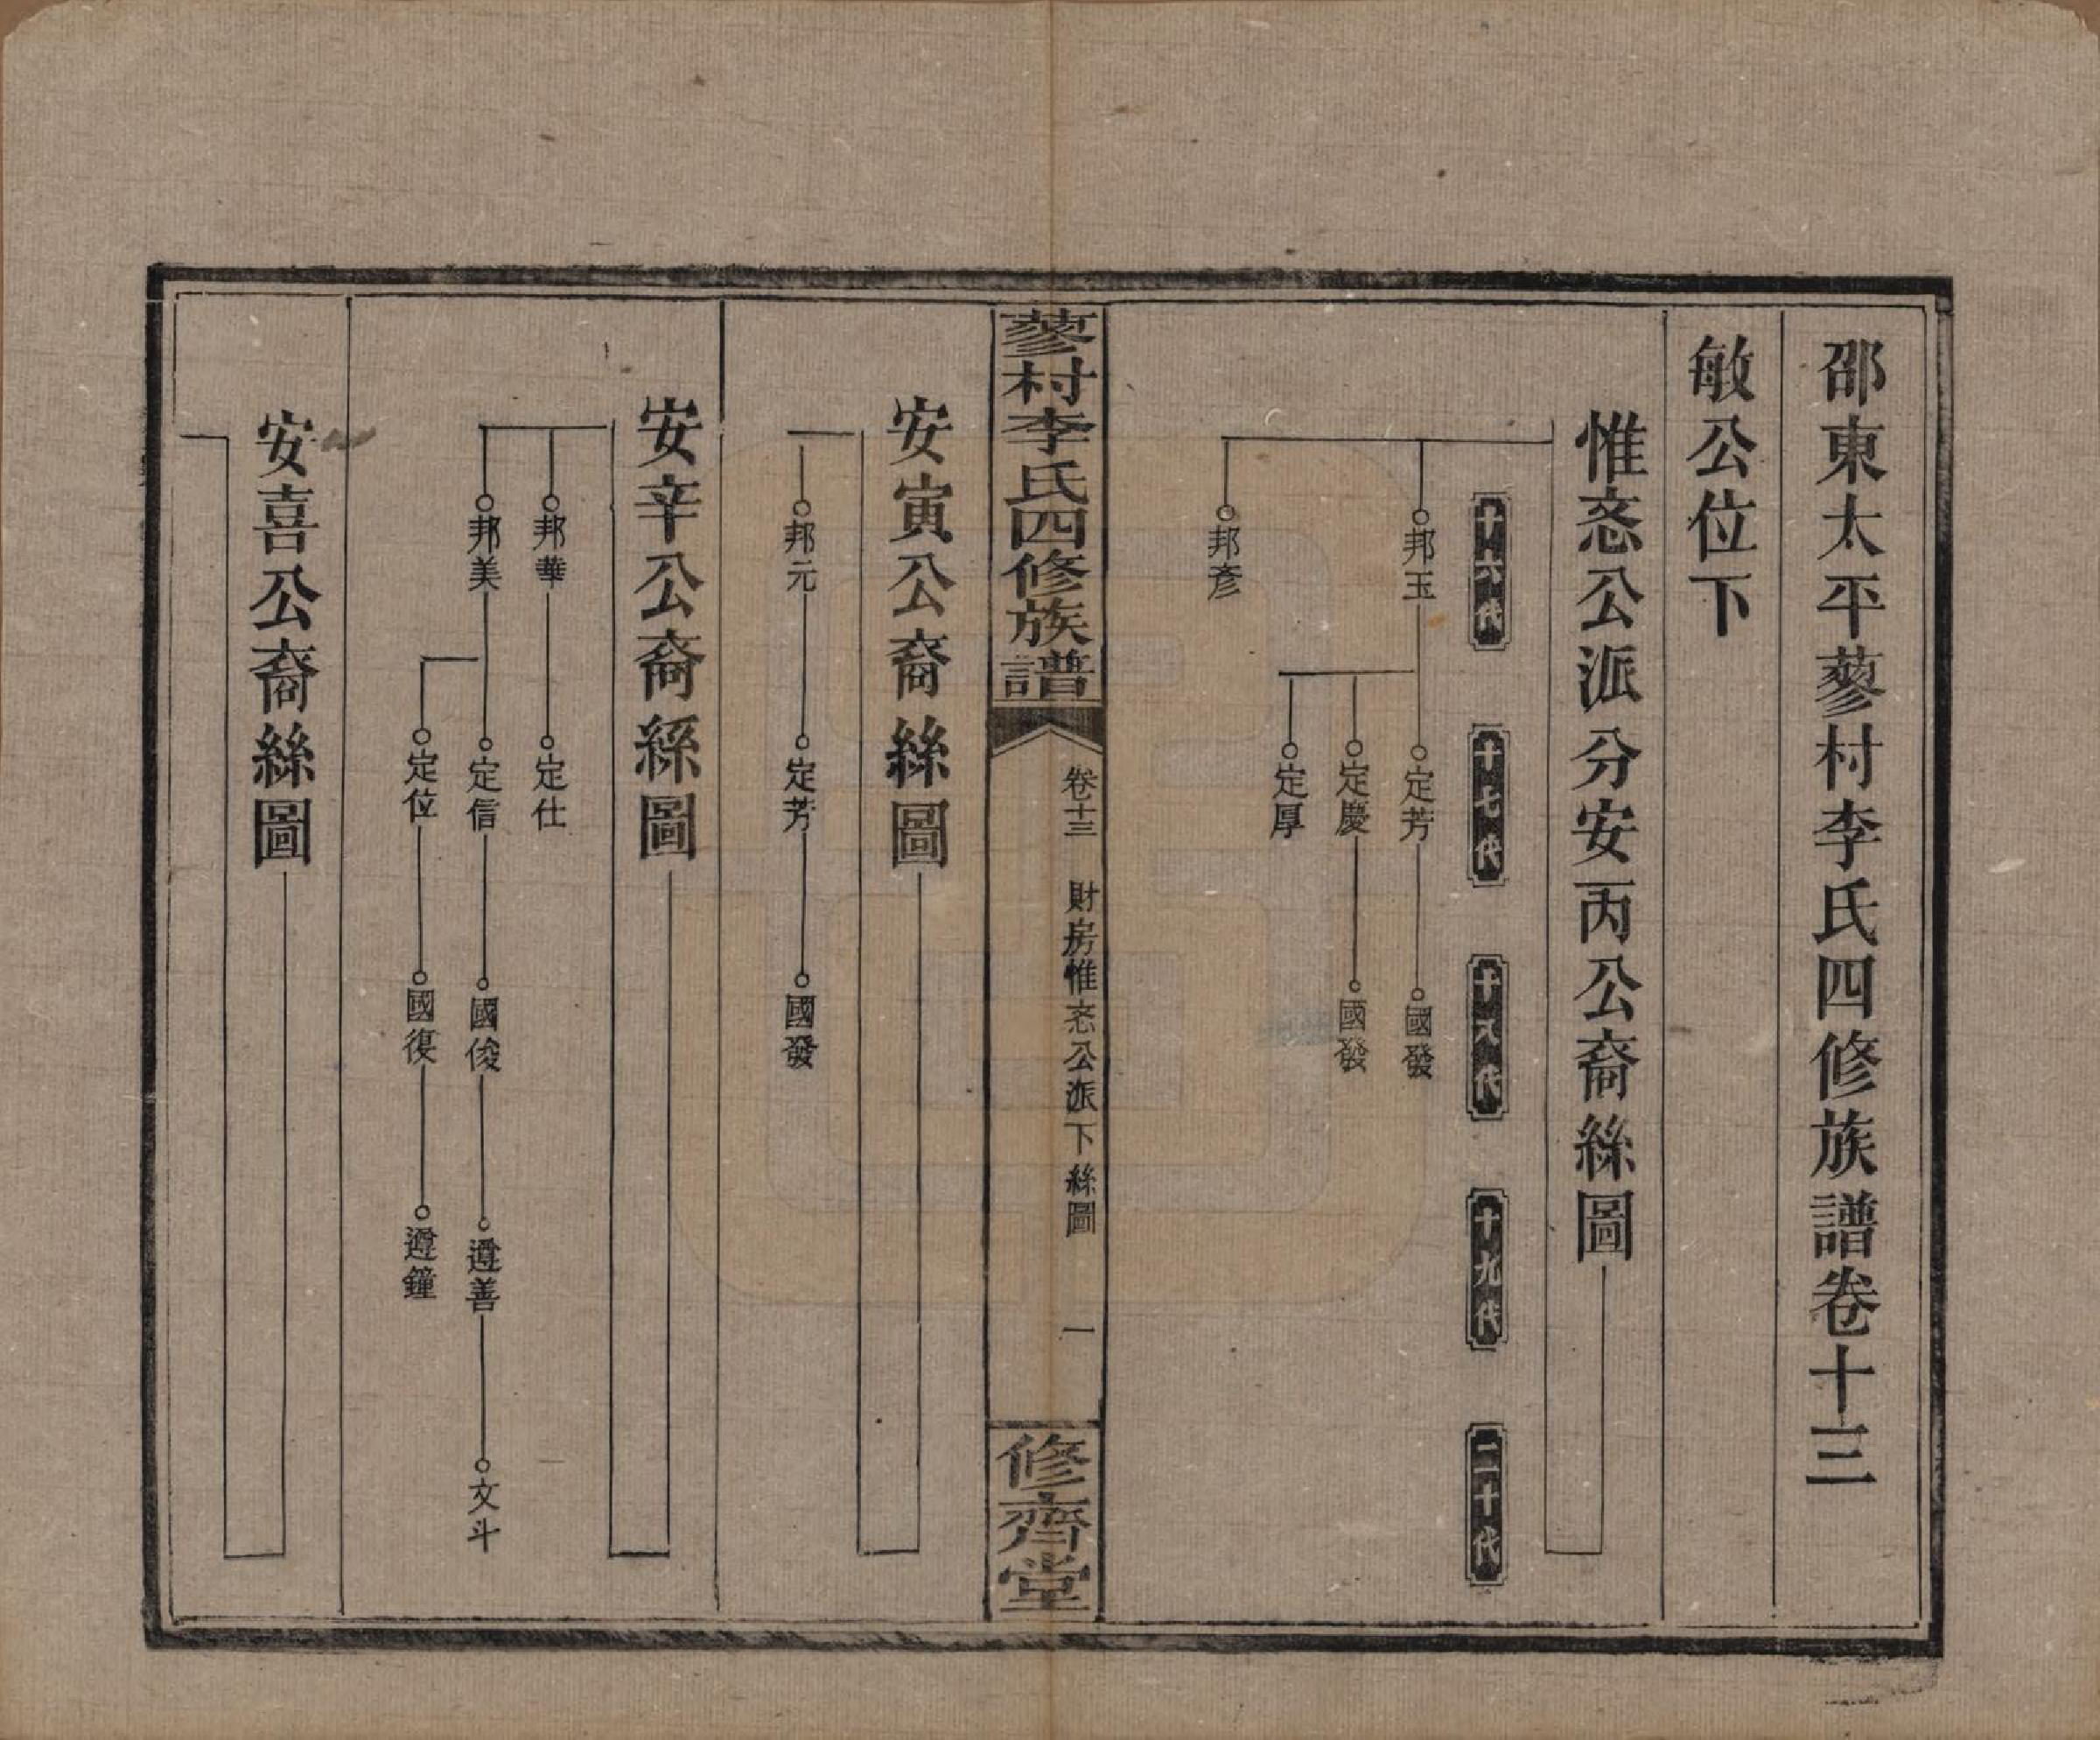 邵東太平蓼村李氏四修族譜卷十三
敏公位下
惟忞公派分安丙公裔絲圖
十六代
十七代
十八代
十九代
二十代
邦玉
定芳
國發
定慶
國發
定厚
邦彥
蓼村李氏四修族譜
卷十三
財房惟忞公派下絲圖
一
修齊堂
安寅公裔絲圖
邦元
定芳
國發
安辛公裔絲圖
邦華
定仕
邦美
定信
國俊
遵善
文斗
定位
國復
遵鐘
安喜公裔絲圖